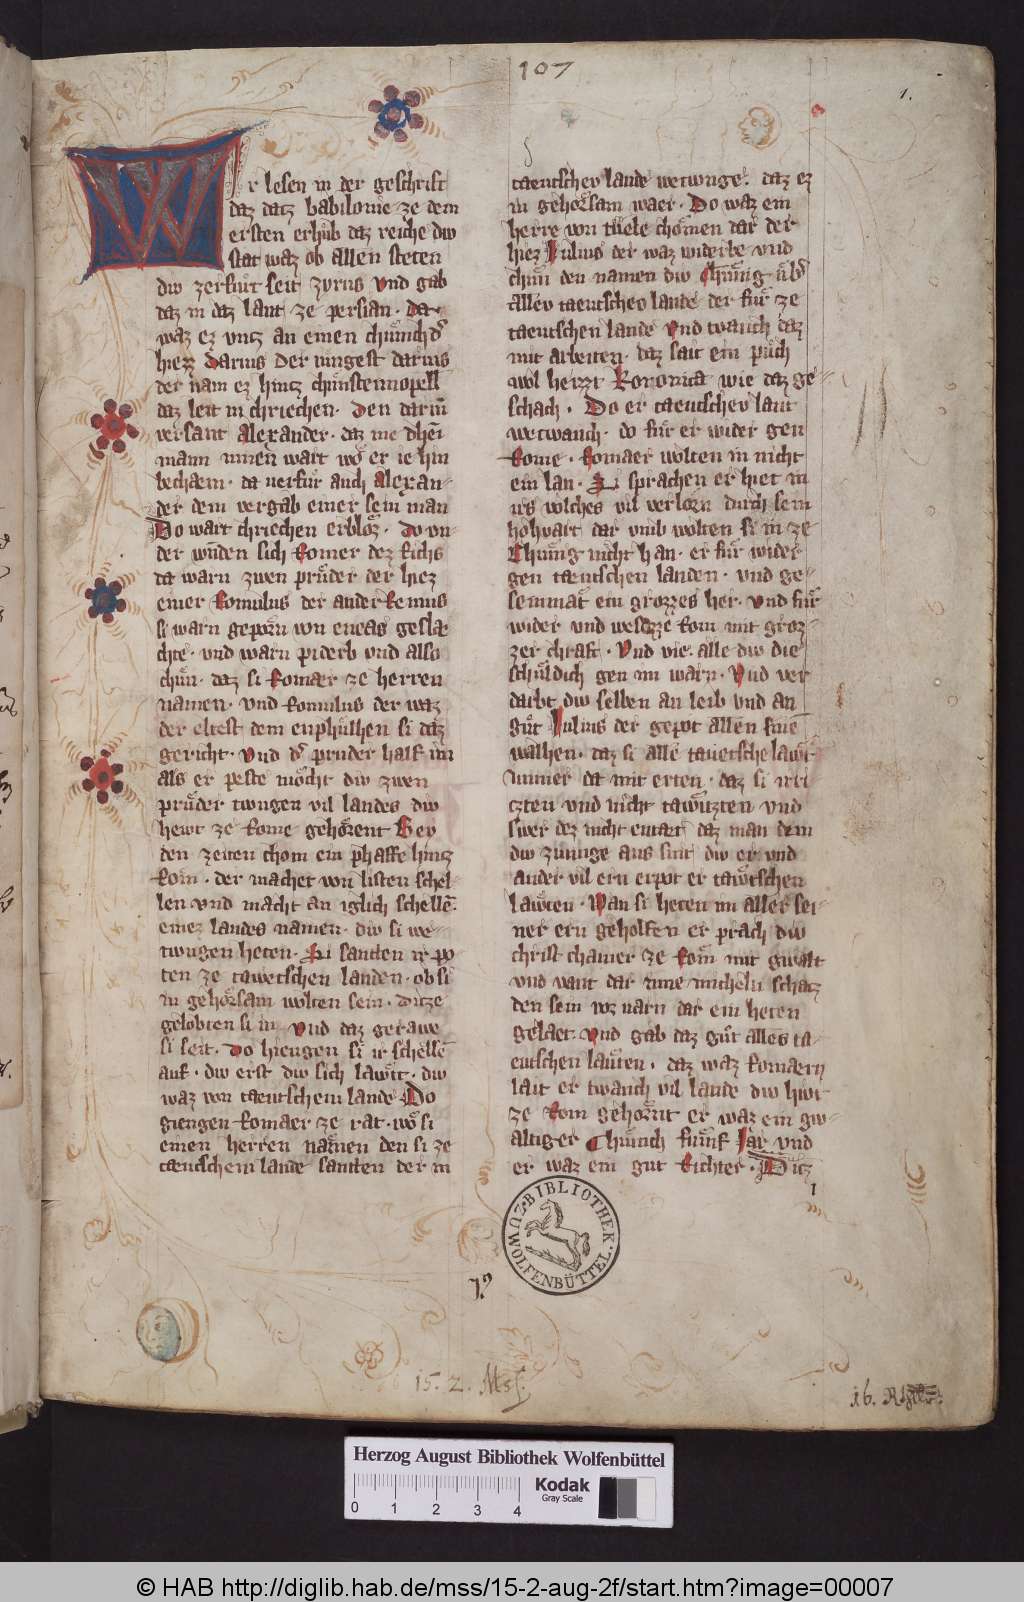 107
1.
Wir lesen in der geschrift
daz datz babilonie ze dem
ersten erhub daz reiche div
stat waz ob allen steten
div zerfuͤrt seit zyrus vnd gab
daz in daz lant ze persian. da
waz ez vntz an einen chuͤnich d͛
hiezz darius Der iungest darius
der nam ez hintz chuͤnstennopell
daz leit in chriechen. Den dariū
versant Alexander. daz nie dhei
mann innen wart wo er ie hin
bechaem. da uerfuͤr auch alexan-
der dem vergab einer sein man
Do wart chriechen erbloͤz. Do vn-
der wnden sich Romer dez Richs
da warn zwen pruͤder der hiez
einer Romulus der ander Remus
si warn geporn von eneas geslae
chte. vnd warn piderb vnd also
chuͤn. daz si Romaer ze herren
namen. vnd Romulus der waz
der eltest dem enphulhen si daz
gericht. Vnd d͛ pruder half im
als er peste moͤcht div zwen
pruͤder twngen vil landes div
hewt ze Rome gehoͤrent Bey
den zeiten chom ein phaffe hintz
Rom. der machet von listen schel-
len vnd macht an iglich schellē
einez landes namen. div si we-
twngen heten. Si santen ir po
ten ze tawetschen landen. ob si
in gehoͤrsam wolten sein. Ditze
gelobten si in vnd daz gerawe
si seit. Do hiengen si ir schellē
auf. div erst div sich lawͤt. div
waz von taeutschem lande Do
giengen Romaer ze rat. wo si
einen herren namen den si ze
taeutschem lande santen der in
taeutschev lande wetwnge. daz ez
in gehoͤrsam waer. Do waz ein
herre von tuͤele chomen dar der
hiez Iulius der waz widerbe vnd
chuͤn den namen div Chuͤnig uͤb͛
allev taeutschev lande der fuͤr ze
taeutschen lande Vnd twanch daz
mit arbeiten. daz sait ein puͤch
wol heizzt Koronica wie daz ge-
schach. Do er taeutschev lant
wetwanch. do fuͤr er wider gen
Rome. Romaer wolten in nicht
ein lan. Si sprachen er hiet in
irs volches vil verlorn durch sein
hohvart dar vmb wolten si in ze
Chuͤnig nicht han. er fuͤr wider
gen taeutschen landen. vnd ge-
semmat ein grozzes her. vnd fuͤr
wider vnd wesazze Rom mit groz-
zer chraft. Vnd vie. alle div die
schuldich gen im warn. Vnd ver
darbt div selben an leib vnd an
guͤt Iulius der gepot allen sinē
walhen. daz si alle tauetsche lawͤt
immer da mit erten. daz si irri
czten vnd nicht tawͤtzten vnd
swer dez nicht entaet daz man dem
div zunnge aus snit div er vnd
ander vil ern erpot er tawͤtschen
lawͤten. Wan si heten im aller sei-
ner ern geholfen er prach div
christ chamer ze Rom mit gwalt
vnd vant dar inne micheln schatz
den sein voruarn dar ein heten
gelaet. Vnd gab daz guͤt alles ta-
eutschen lawten. daz waz Romaern
lait er twanch vil lande div hiwt
ze Rom gehornt er waz ein gw-
altiger Chuͤnch fuͤnf Iar vnd
er waz ein gut Richter. Ditz
1
BIBLIOTHEK. WOLFENBÜTTEL. Z.U.W
15. 2. Mss.
Herzog August Bibliothek Wolfenbüttel
0 1 2 3 4
Kodak
Gray Scale
© HAB http://diglib.hab.de/mss/15-2-aug-2f/start.htm?image=00007